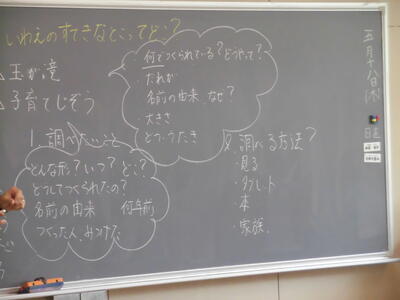 いわえのすてきなとこってどこ?
玉が滝
子育てじぞう
1 調べたいこと
・何でつくられている?どうやって?
・だれが
・名前の由来、なぜ?
・大きさ
どんな形?いつ?どこ?
どうしてつくられたの?
名前の由来 何年前
つくった人、
2 調べる方法?
・見る
・タブレット
・本
・家族
五月十八日(木)
日直